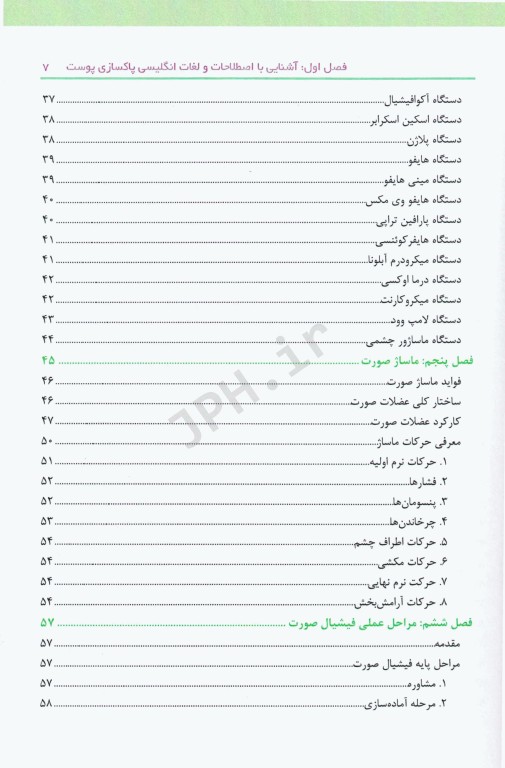 فصل اول: آشنایی با اصطلاحات و لغات انگلیسی پاکسازی پوست ۷
دستگاه آکوافیشیال ۳۷
دستگاه اسکین اسکرابر ۳۸
دستگاه پلاژن ۳۸
دستگاه هایفو ۳۹
دستگاه مینی هایفو ۳۹
دستگاه هایفو وی مکس ۴۰
دستگاه پارافین تراپی ۴۰
دستگاه هایفرکوئنسی ۴۱
دستگاه میکرودرم آبلونا ۴۱
دستگاه درما اوکسی ۴۲
دستگاه میکروکارنت ۴۲
دستگاه لامپ وود ۴۳
دستگاه ماساژور چشمی ۴۴
فصل پنجم: ماساژ صورت ۴۵
فواید ماساژ صورت ۴۶
ساختار کلی عضلات صورت ۴۶
کارکرد عضلات صورت ۴۷
معرفی حرکات ماساژ ۵۰
۱. حرکات نرم اولیه ۵۱
۲. فشارها ۵۲
۳. پنسومان‌ها ۵۲
۴. چرخاندن‌ها ۵۳
۵. حرکات اطراف چشم ۵۴
۶. حرکات مکشی ۵۴
۷. حرکت نرم نهایی ۵۴
۸. حرکات آرامش‌بخش ۵۴
فصل ششم: مراحل عملی فیشیال صورت ۵۷
مقدمه ۵۷
مراحل پایه فیشیال صورت ۵۷
۱. مشاوره ۵۷
۲. مرحله آماده‌سازی ۵۸
JPH.ir